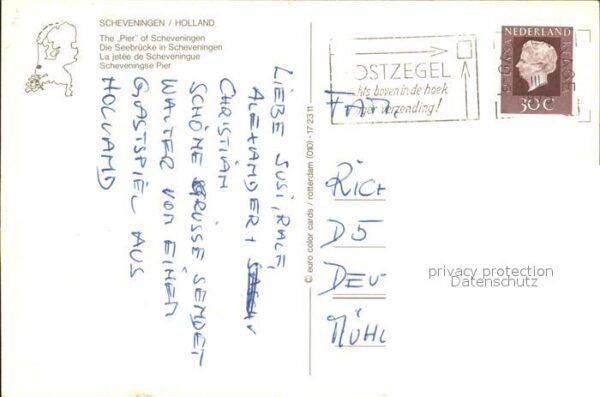 SCHEVENINGEN / HOLLAND
The „Pier" of Scheveningen
Die Seebrücke in Scheveningen
La jetée de Scheveningue
Scheveningse Pier
LIEBE SUSI, RALF,
ALEXANDER +
CHRISTIAN
SCHÖNE GRÜSSE SENDET
WALTER VON EINEM
GASTSPIEL AUS
HOLLAND
© euro color cards / rotterdam (010) - 17 23 11
OSTZEGEL
hts boven in de hoek
verzending!
NEDERLAND
30 C
FAM.
RICH
D 5
DEU
MÜHL
privacy protection
Datenschutz